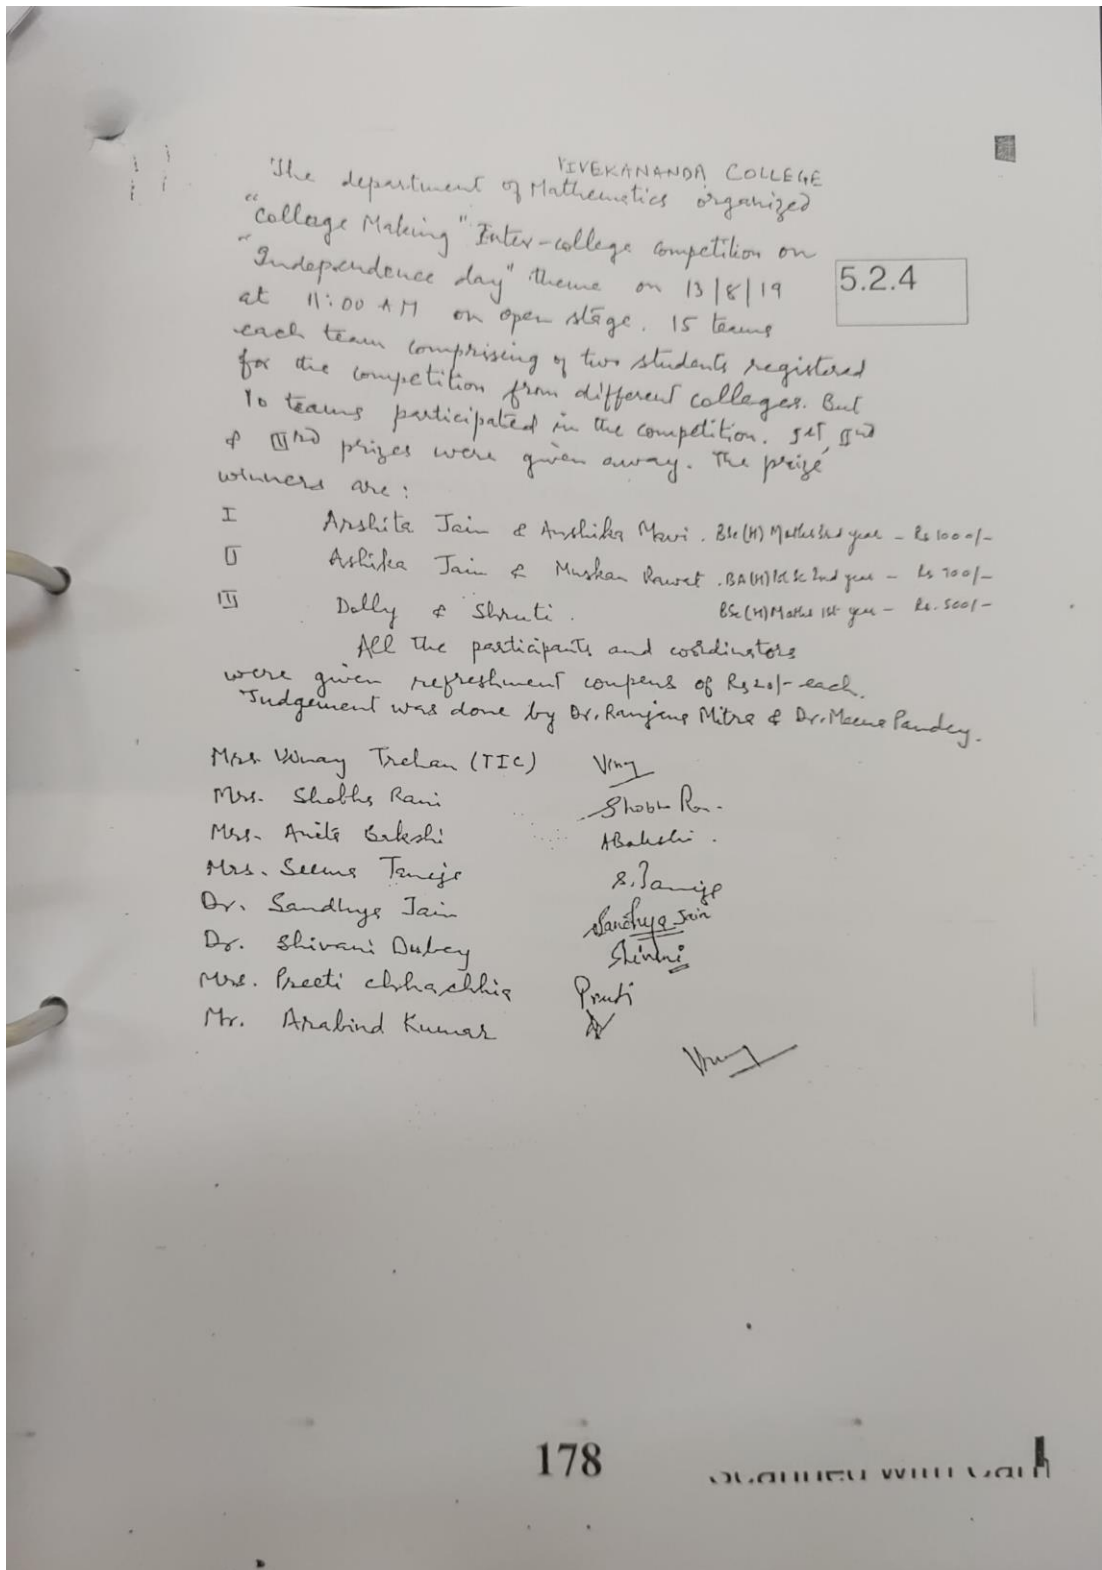 VIVEKANANDA COLLEGE
The department of Mathematics organized
"Collage Making" Inter-college competition on
"Independence day" theme on 13/8/19
5.2.4
at 11:00 AM on open stage. 15 teams
each team comprising of two students registered
for the competition from different colleges. But
10 teams participated in the competition. Ist, IInd
& IIIrd prizes were given away. The prize
winners are:
I Arshita Jain & Anshika Mavi. BSc(H) Maths 3rd year - Rs 1000/-
II Ashika Jain & Muskan Rawat. BA(H) 2nd year - Rs 700/-
III Dolly & Shruti. BSc(H) Maths 1st year - Rs. 500/-
All the participants and coordinators
were given refreshment coupens of Rs 20/- each.
Judgement was done by Dr. Ranjana Mitra & Dr. Meena Pandey.
Mrs. Vinay Trehan (TIC) Vinay
Mrs. Shobha Rani Shobha Rani
Mrs. Anita Bakshi ABakshi.
Mrs. Seema Taneja S.Taneja
Dr. Sandhya Jain Sandhya Jain
Dr. Shivani Dubey Shivani
Mrs. Preeti Chhachhia Preeti
Mr. Arabind Kumar
Vinay
178